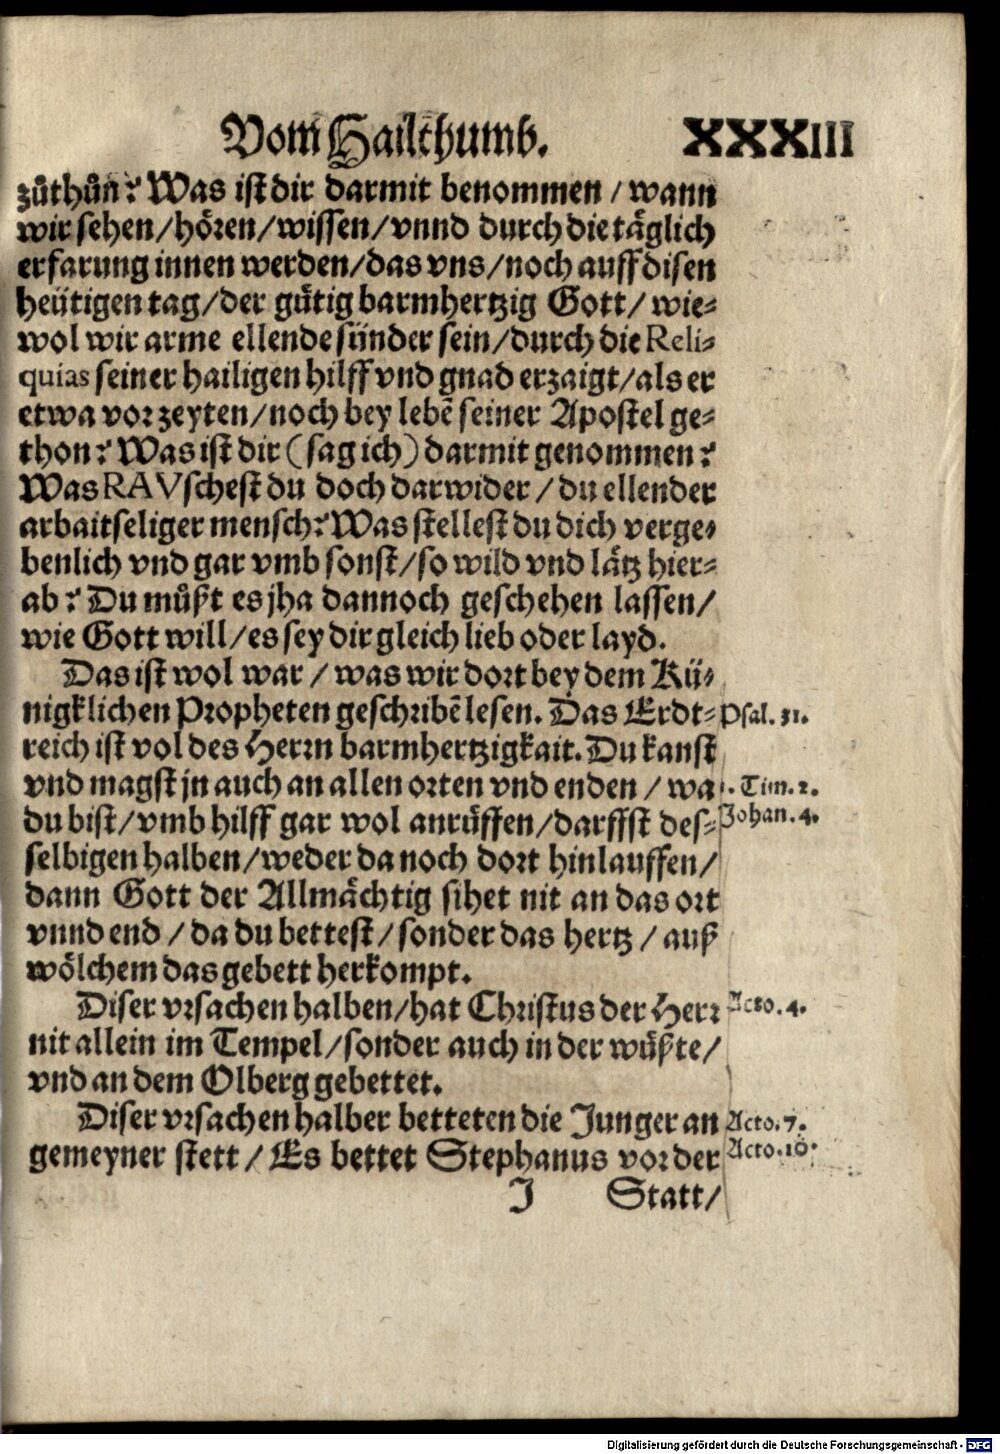 Vom Hailthumb. XXXIII
zůthůn? Was ist dir darmit benommen / wann
wir sehen/hören/wissen/vnnd durch die täglich
erfarung innen werden/das vns/noch auff disen
heütigen tag/der gütig barmhertzig Gott/ wie-
wol wir arme ellende sünder sein/durch die Reli-
quias seiner hailigen hilff vnd gnad erzaigt/als er
etwa vor zeyten/noch bey lebẽ seiner Apostel ge-
thon? Was ist dir (sag ich) darmit genommen?
Was RAVschest du doch darwider / du ellender
arbaitseliger mensch? Was stellest du dich verge-
benlich vnd gar vmb sonst/so wild vnd lätz hier-
ab? Du můßt es jha dannoch geschehen lassen/
wie Gott will/es sey dir gleich lieb oder layd.
Das ist wol war / was wir dort bey dem Kü-
nigklichen Propheten geschribẽ lesen. Das Erdt- Psal. 31.
reich ist vol des Herrn barmhertzigkait. Du kanst
vnd magst jn auch an allen orten vnd enden / wa 1. Tim. 2.
du bist/vmb hilff gar wol anrůffen/darffst des- Johan. 4.
selbigen halben/weder da noch dort hinlauffen/
dann Gott der Allmächtig sihet nit an das ort
vnnd end / da du bettest/sonder das hertz / auß
wölchem das gebett herkompt.
Diser vrsachen halben/hat Christus der Herr Acto. 4.
nit allein im Tempel/sonder auch in der wüßte/
vnd an dem Olberg gebettet.
Diser vrsachen halber betteten die Junger an Acto. 7.
gemeyner stett / Es bettet Stephanus vor der Acto. 16.
J Statt/
Digitalisierung gefördert durch die Deutsche Forschungsgemeinschaft - DFG